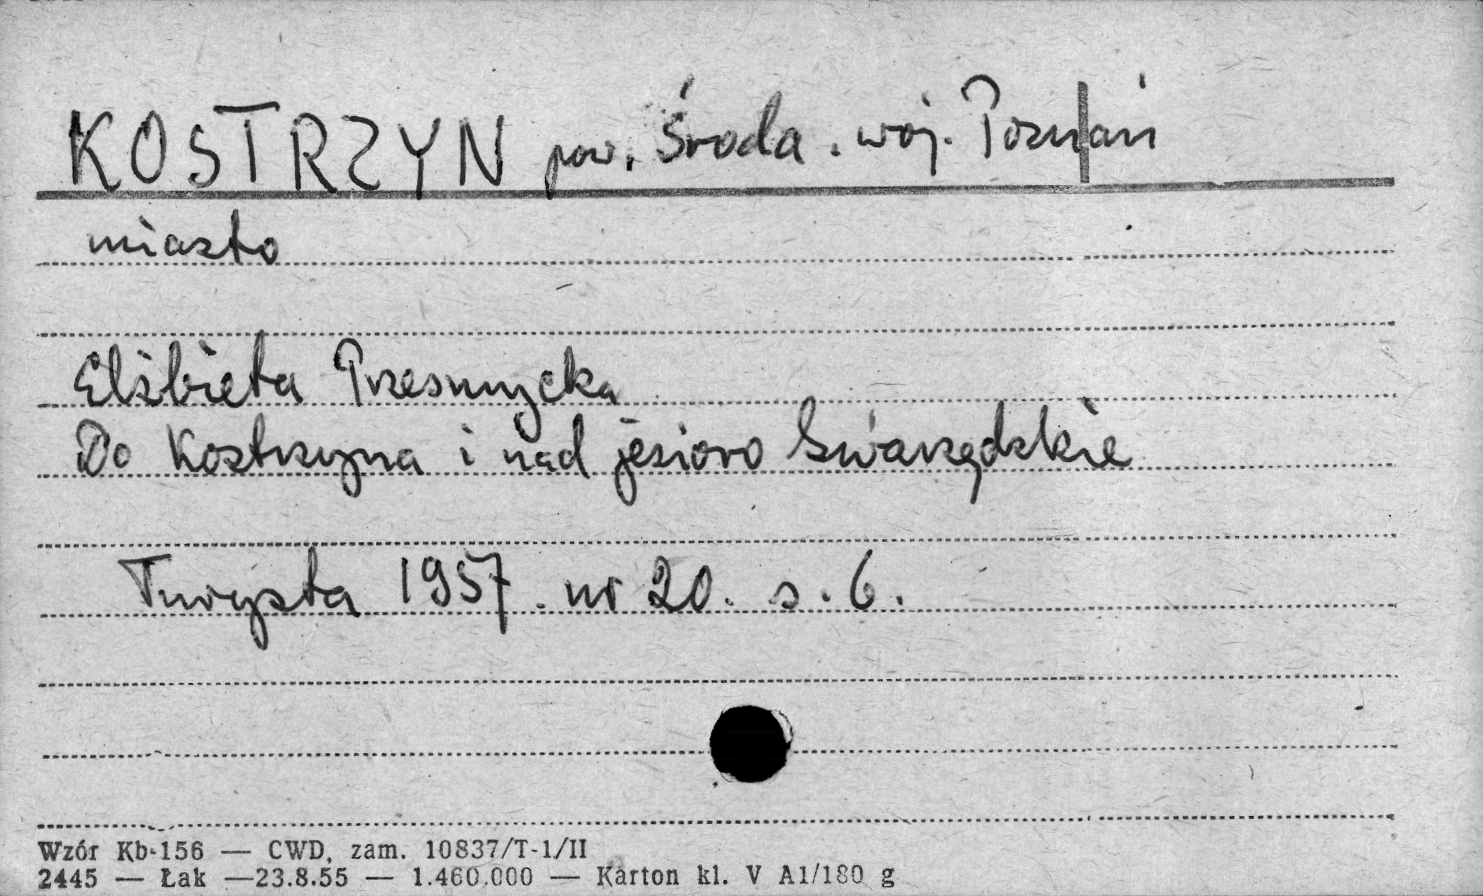 KOSTRZYN pow. Środa. woj. Poznań
miasto
Elżbieta Przesmycka
Do Kostrzyna i nad jezioro Swarzędzkie
Turysta 1957. nr 20. s. 6.
Wzór Kb-156 — CWD, zam. 10837/T-1/II
2445 — Łak —23.8.55 — 1.460.000 — Karton kl. V A1/180 g